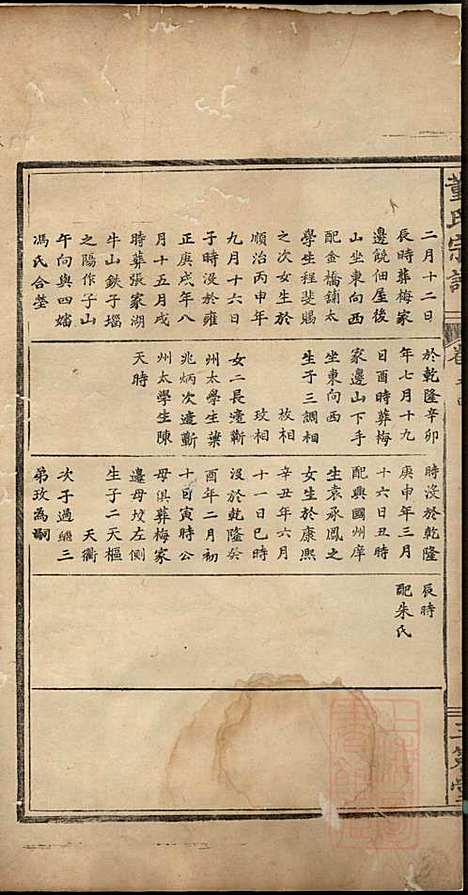 董氏宗譜
二月十二日
辰時葬梅家
邊饒佃屋後
山坐東向西
配金橋舖太
學生程斐賜
之次女生於
順治丙申年
九月十六日
子時沒於雍
正庚戌年八
月十五月戌
時葬張家湖
牛山鉄子堖
之陽作子山
午向與四嬸
馮氏合塋
於乾隆辛卯
年七月十九
日酉時葬梅
家邊山下手
坐東向西
生子三調相
枚相
玫相
女二長適蘄
州太學生葉
兆炳次適蘄
州太學生陳
天時
時沒於乾隆
庚申年三月
十六日丑時
配興國州庠
生袁承鳳之
女生於康熙
辛丑年六月
十一日巳時
沒於乾隆癸
酉年二月初
十日寅時公
母俱葬梅家
邊母坟左側
生子二天樞
天衢
次子過繼三
弟玫為嗣
辰時
配朱氏